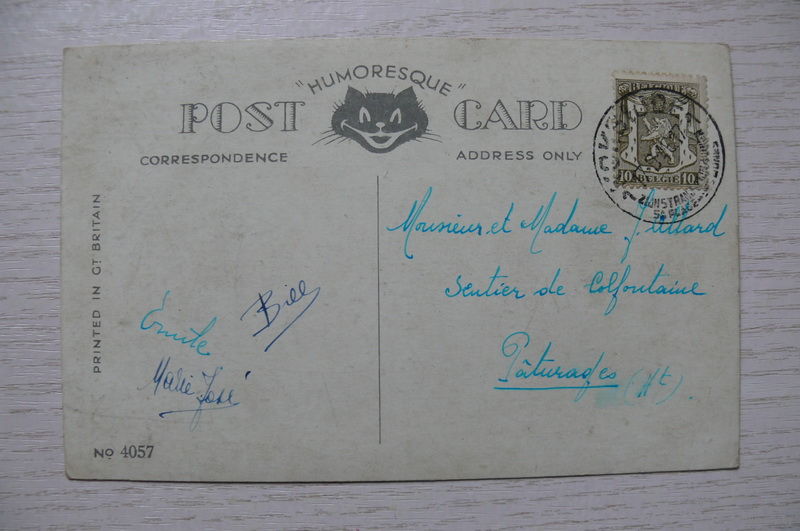 "HUMORESQUE"
POST CARD
CORRESPONDENCE
ADDRESS ONLY
BELGIQUE
10 BELGIE 10
ZIJN STRAND
SA PLAGE
Monsieur et Madame
Sentier de Colfontaine
Pâturages (Ht).
Émile
Bill
Marie José
PRINTED IN GT BRITAIN
No 4057